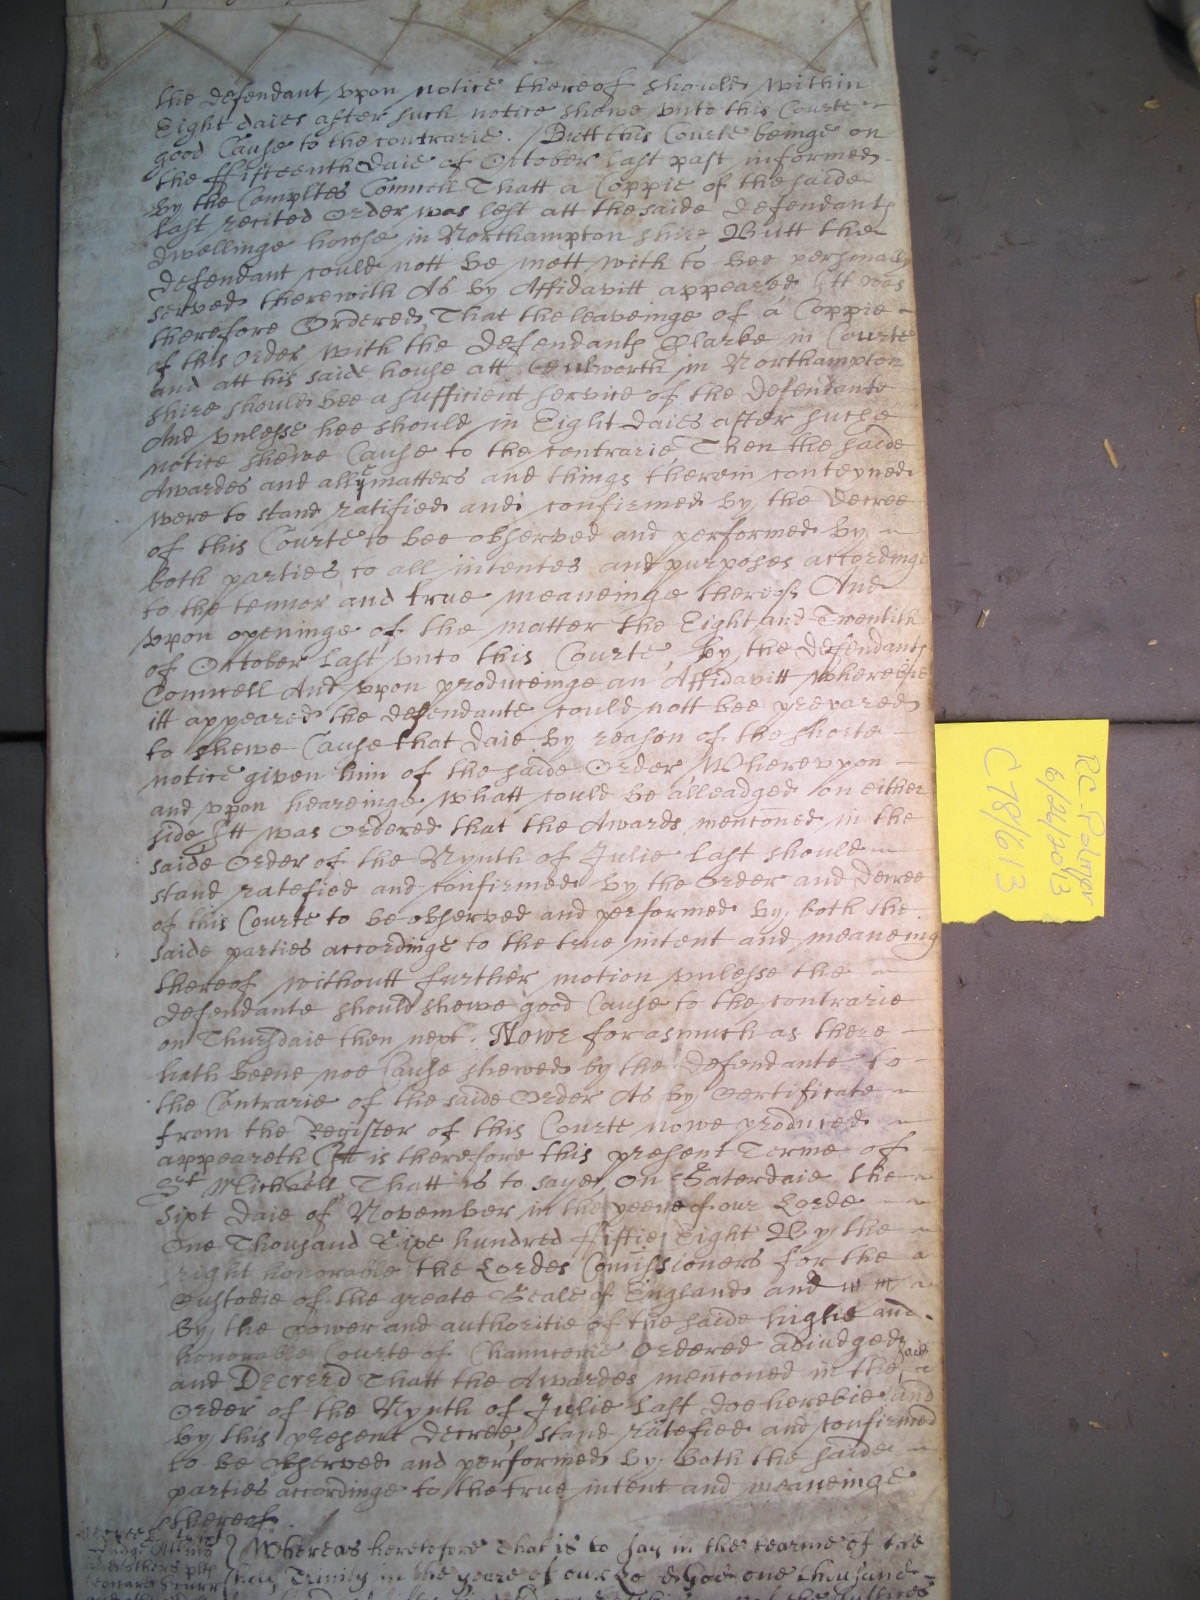 the defendant vpon notice thereof should within
Eight daies after such notice shewe vnto this Courte
good Cause to the contrarie. Butt this Courte beinge on
the ffifteenth Daie of October last past informed
by the Compltes Councell Thatt a Coppie of the saide
last recited Order was left att the saide Defendants
Dwellinge howse in Northampton shire Butt the
defendant could nott be mett with to bee personally
served therewith As by Affidavitt appeared Itt was
therefore Ordered That the leaveinge of a Coppie
of this Order with the Defendants Clarke in Courte
and att his saide house att Culworth in Northampton
shire should bee a sufficient service of the Defendante
And vnlesse hee should in Eight Daies after suche
notice shewe Cause to the contrarie Then the saide
Awardes and all ye matters and things therein conteyned
were to stand ratified and confirmed by the Decree
of this Courte to bee observed and performed by
both parties to all intentes and purposes accordinge
to the tennor and true meaneinge thereof And
vpon openinge of the matter the Eight and Twentith
of October last vnto this Courte, by the Defendants
Councell And vpon produceinge an Affidavitt whereby
itt appeared the defendante could nott bee prepared
to shewe Cause that Daie by reason of the shorte
notice given him of the saide Order Wherevpon
and vpon heareinge whatt could be alleadged on either
side Itt was Ordered that the Awards mencioned in the
saide Order of the Nynth of Julie last should
stand ratefied and confirmed by the Order and Decree
of this Courte to be observed and performed by both the
saide parties accordinge to the true intent and meaneing
thereof withoutt further motion vnlesse the
defendante should shewe good Cause to the contrarie
on Thursdaie then next. Nowe forasmuch as there
hath beene noe Cause shewed by the defendante to
the Contrarie of the saide Order As by Certificate
from the Register of this Courte nowe produced
appeareth Itt is therefore this present Terme of
St Michaell Thatt is to saye, on Saterdaie the
sixt daie of November in the yeere of our Lorde
One Thousand Sixe hundred ffiftie Eight By the
right honorable the Lordes Comissioners for the
Custodie of the greate Seale of England and
By the power and authoritie of the saide highe and
honorable Courte of Chauncerie Ordered adiudged
and Decreed Thatt the Awardes mencioned in the said
Order of the Nynth of Julie last doe herebie and
by this present Decree, stand ratefied and confirmed
to be observed and performed by both the saide
parties accordinge to the true intent and meaneinge
thereof.
Whereas heretofore That is to say in the tearme of the
Trinity in the yeare of our Lo: God one thousand
RC Palmer
6/24/2013
C78/613